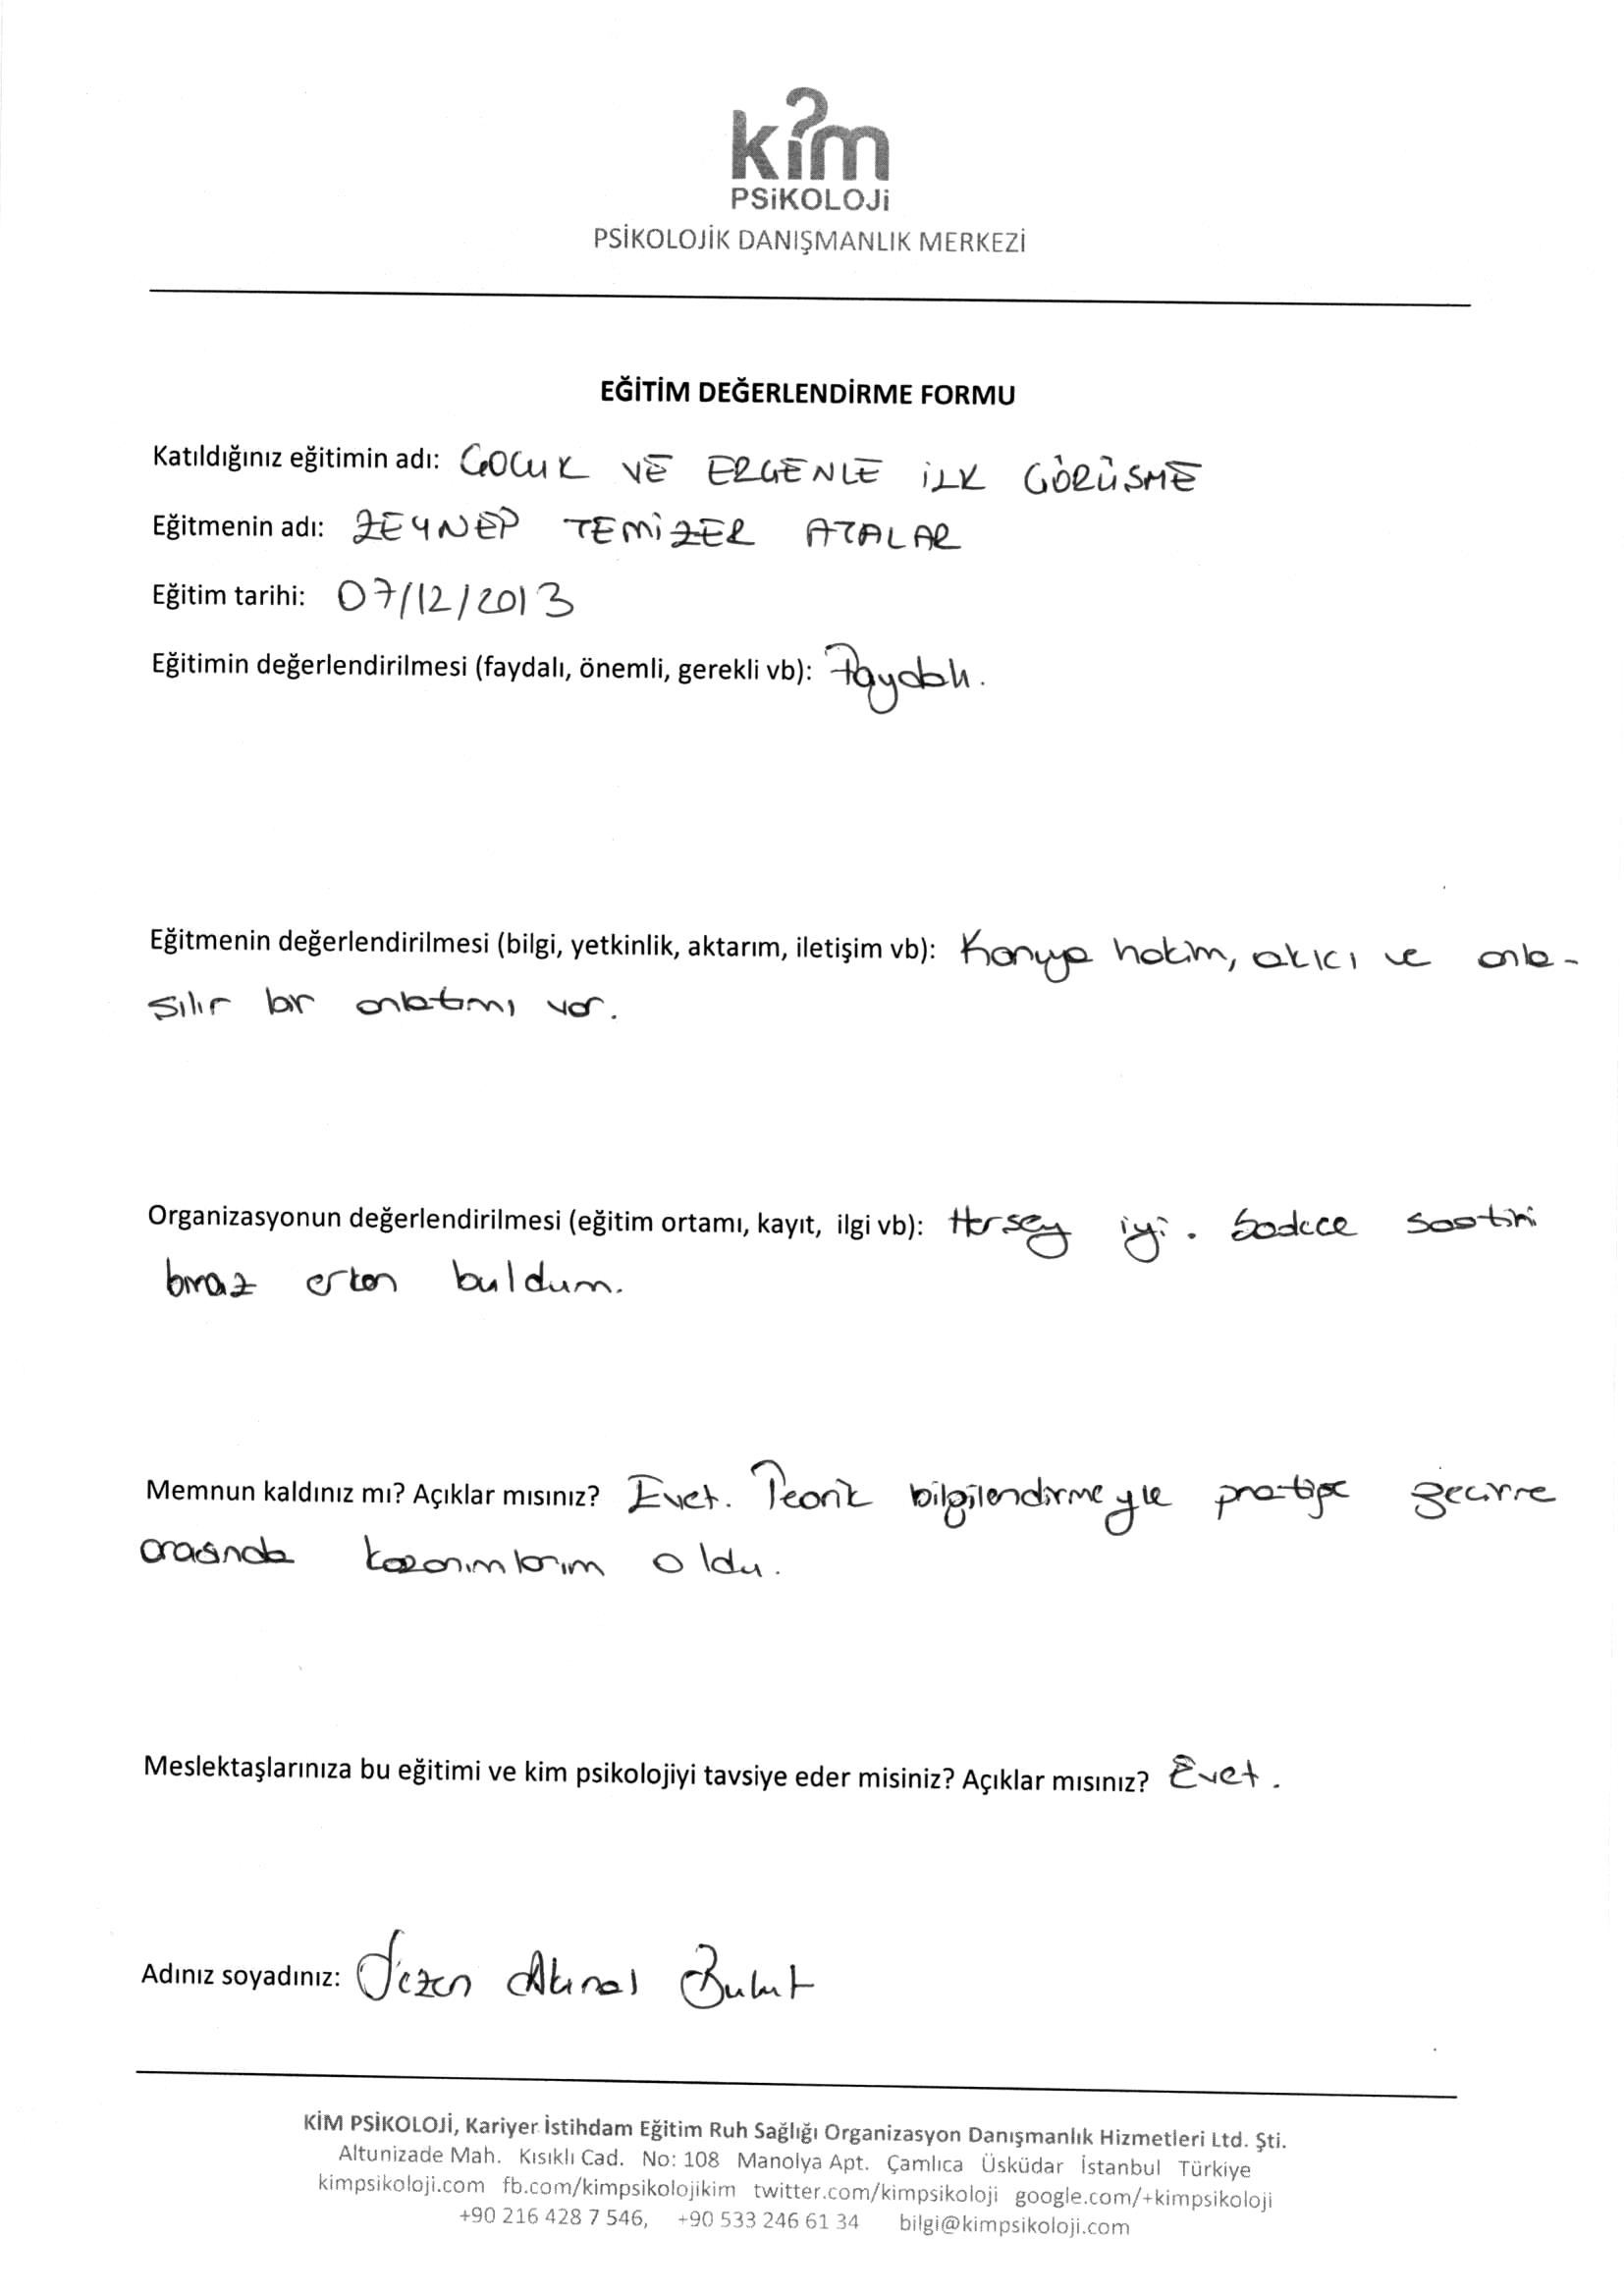 kim
PSiKOLOJi
PSİKOLOJİK DANIŞMANLIK MERKEZİ
EĞİTİM DEĞERLENDİRME FORMU
Katıldığınız eğitimin adı: ÇOCUK VE ERGENLE İLK GÖRÜŞME
Eğitmenin adı: ZEYNEP TEMİZER ATALAR
Eğitim tarihi: 07/12/2013
Eğitimin değerlendirilmesi (faydalı, önemli, gerekli vb): Faydalı.
Eğitmenin değerlendirilmesi (bilgi, yetkinlik, aktarım, iletişim vb): Konuya hakim, akıcı ve anla-
şılır bir anlatımı var.
Organizasyonun değerlendirilmesi (eğitim ortamı, kayıt, ilgi vb): Herşey iyi. Sadece saatini
biraz erken buldum.
Memnun kaldınız mı? Açıklar mısınız? Evet. Teorik bilgilendirmeyle pratiğe geçirme
arasında kazanımlarım oldu.
Meslektaşlarınıza bu eğitimi ve kim psikolojiyi tavsiye eder misiniz? Açıklar mısınız? Evet.
Adınız soyadınız: Sezen Bulut
KİM PSİKOLOJİ, Kariyer İstihdam Eğitim Ruh Sağlığı Organizasyon Danışmanlık Hizmetleri Ltd. Şti.
Altunizade Mah. Kısıklı Cad. No: 108 Manolya Apt. Çamlıca Üsküdar İstanbul Türkiye
kimpsikoloji.com fb.com/kimpsikolojikim twitter.com/kimpsikoloji google.com/+kimpsikoloji
+90 216 428 7 546, +90 533 246 61 34 bilgi@kimpsikoloji.com